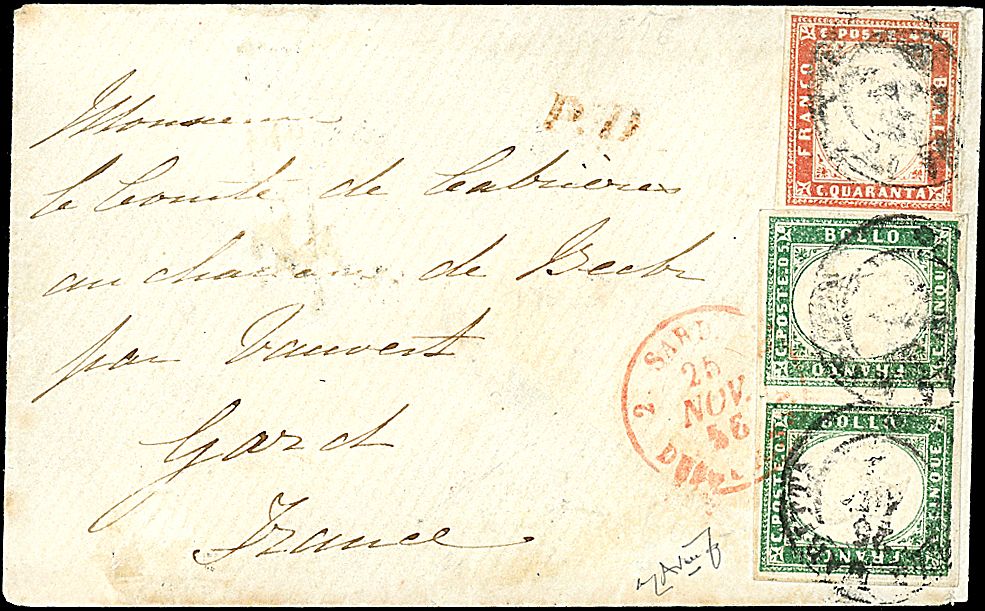 Monsieur
le Comte de Cabrières
au chateau de
par Vauvert
Gard
France
P.D
C. POSTE
FRANCO
BOLLO
C. QUARANTA
BOLLO
C. POSTE 05
CINQUE
FRANCO
2. SARD.
25
NOV.
56
BOLLO
C. POSTE 05
CINQUE
FRANCO